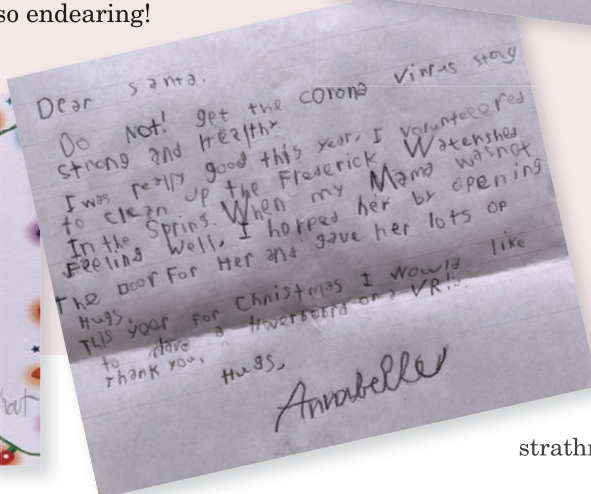 so endearing!
Dear santa.
Do Not! get the corona virrus stay
strong and Healthy
I was really good this year, I volunteered
to clean up the Frederick Watershed
In the Spring. When my Mama wasnot
Feeling well, I horped her by opening
The Door For Her and gave her lots of
Hugs.
This year for Christmas I would like
to have a Hoverboard or a VR!
Thank you.
Hugs,
Annabelle